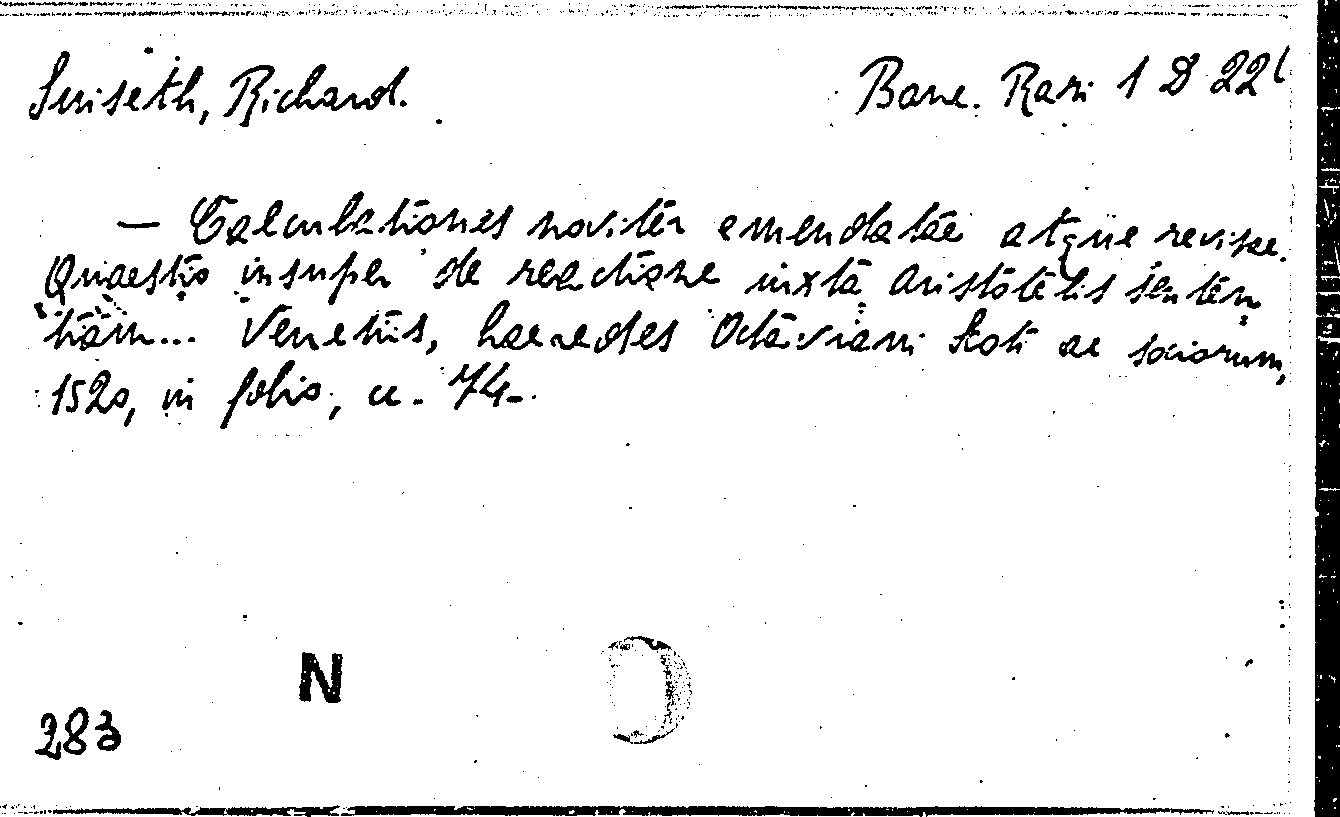 Suiseth, Richard.
Banc. Rari 1 D 22
— Calculationes noviter emendatae atque revisae.
Quaestio insuper de reactione iuxta Aristotelis senten
tiam... Venetiis, haeredes Octaviani Scoti ac sociorum,
1520, in folio, cc. 74.
N
283